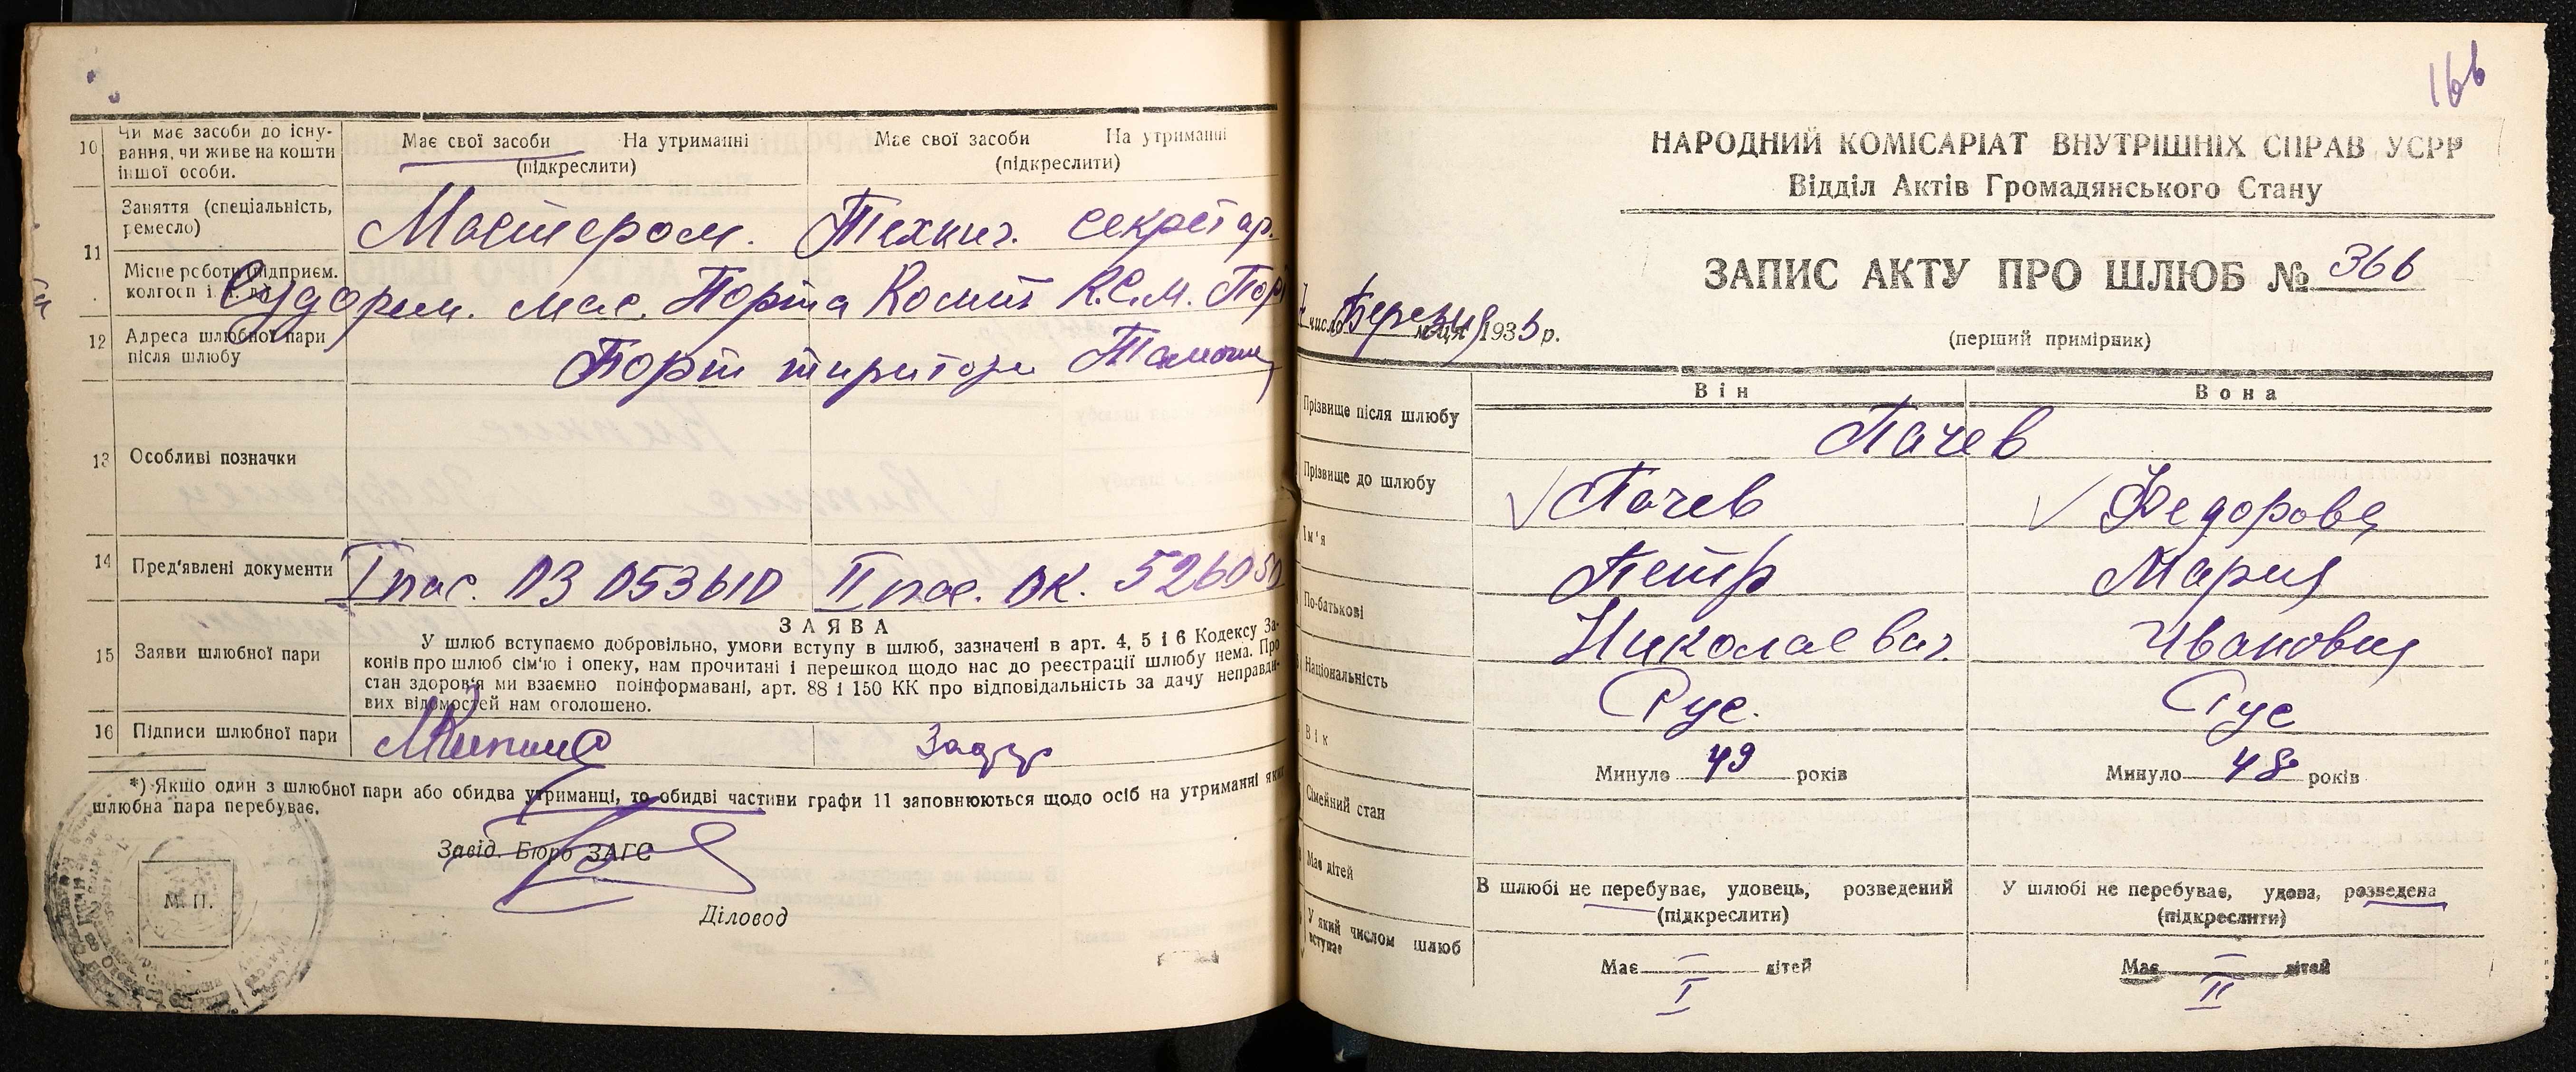 10 Чи має засоби до існу-
вання, чи живе на кошти
іншої особи.
Має свої засоби На утриманні
(підкреслити)
Має свої засоби На утриманні
(підкреслити)
11 Заняття (спеціальність,
ремесло)
Мастером. Технич. секретар.
Місце роботи (підприєм.
колгосп і.
Судорем. мас. Порта Комит К.С.М. Порт
12 Адреса шлюбної пари
після шлюбу
Порт
13 Особливі позначки
14 Пред'явлені документи
I пас. ДЗ 053610 II пас.
ЗАЯВА
15 Заяви шлюбної пари
У шлюб вступаємо добровільно, умови вступу в шлюб, зазначені в арт. 4, 5 і 6 Кодексу За-
конів про шлюб сім'ю і опеку, нам прочитані і перешкод щодо нас до реєстрації шлюбу нема. Про
стан здоров'я ми взаємно поінформавані, арт. 88 і 150 КК про відповідальність за дачу неправди-
вих відомостей нам оголошено.
16 Підписи шлюбної пари
*) Якщо один з шлюбної пари або обидва утриманці, то обидві частини графи 11 заповнюються щодо осіб на утриманні яких
шлюбна пара перебуває.
Завід. Бюро ЗАГС
М. П.
Діловод
166
НАРОДНИЙ КОМІСАРІАТ ВНУТРІШНІХ СПРАВ УСРР
Відділ Актів Громадянського Стану
ЗАПИС АКТУ ПРО ШЛЮБ № 366
число Березня м-ця 1935 р.
(перший примірник)
Він Вона
Прізвище після шлюбу
Пачев
Прізвище до шлюбу
Пачев Федорова
Ім'я
Петр Мария
По-батькові
Николаевич. Ивановня
Національність
Рус. Рус
Вік
Минуло 49 років Минуло 48 років
Сімейний стан
Має дітей
В шлюбі не перебуває, удовець, розведений
(підкреслити)
У шлюбі не перебуває, удова, розведена
(підкреслити)
У який числом шлюб
вступає
Має — дітей Має — дітей
I II